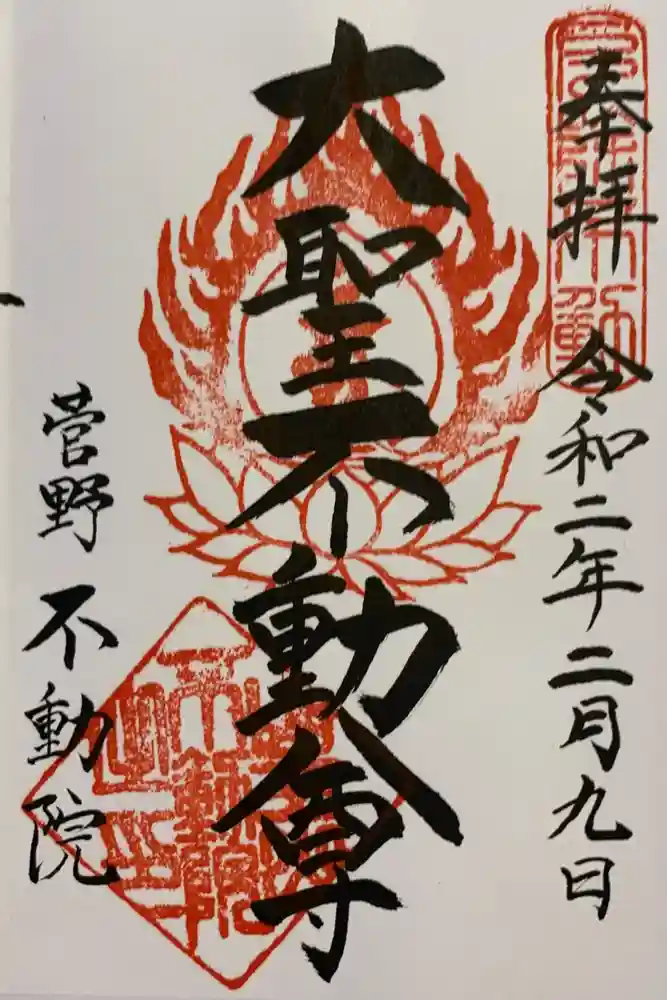 奉拝
令和二年二月九日
大聖不動尊
菅野 不動院